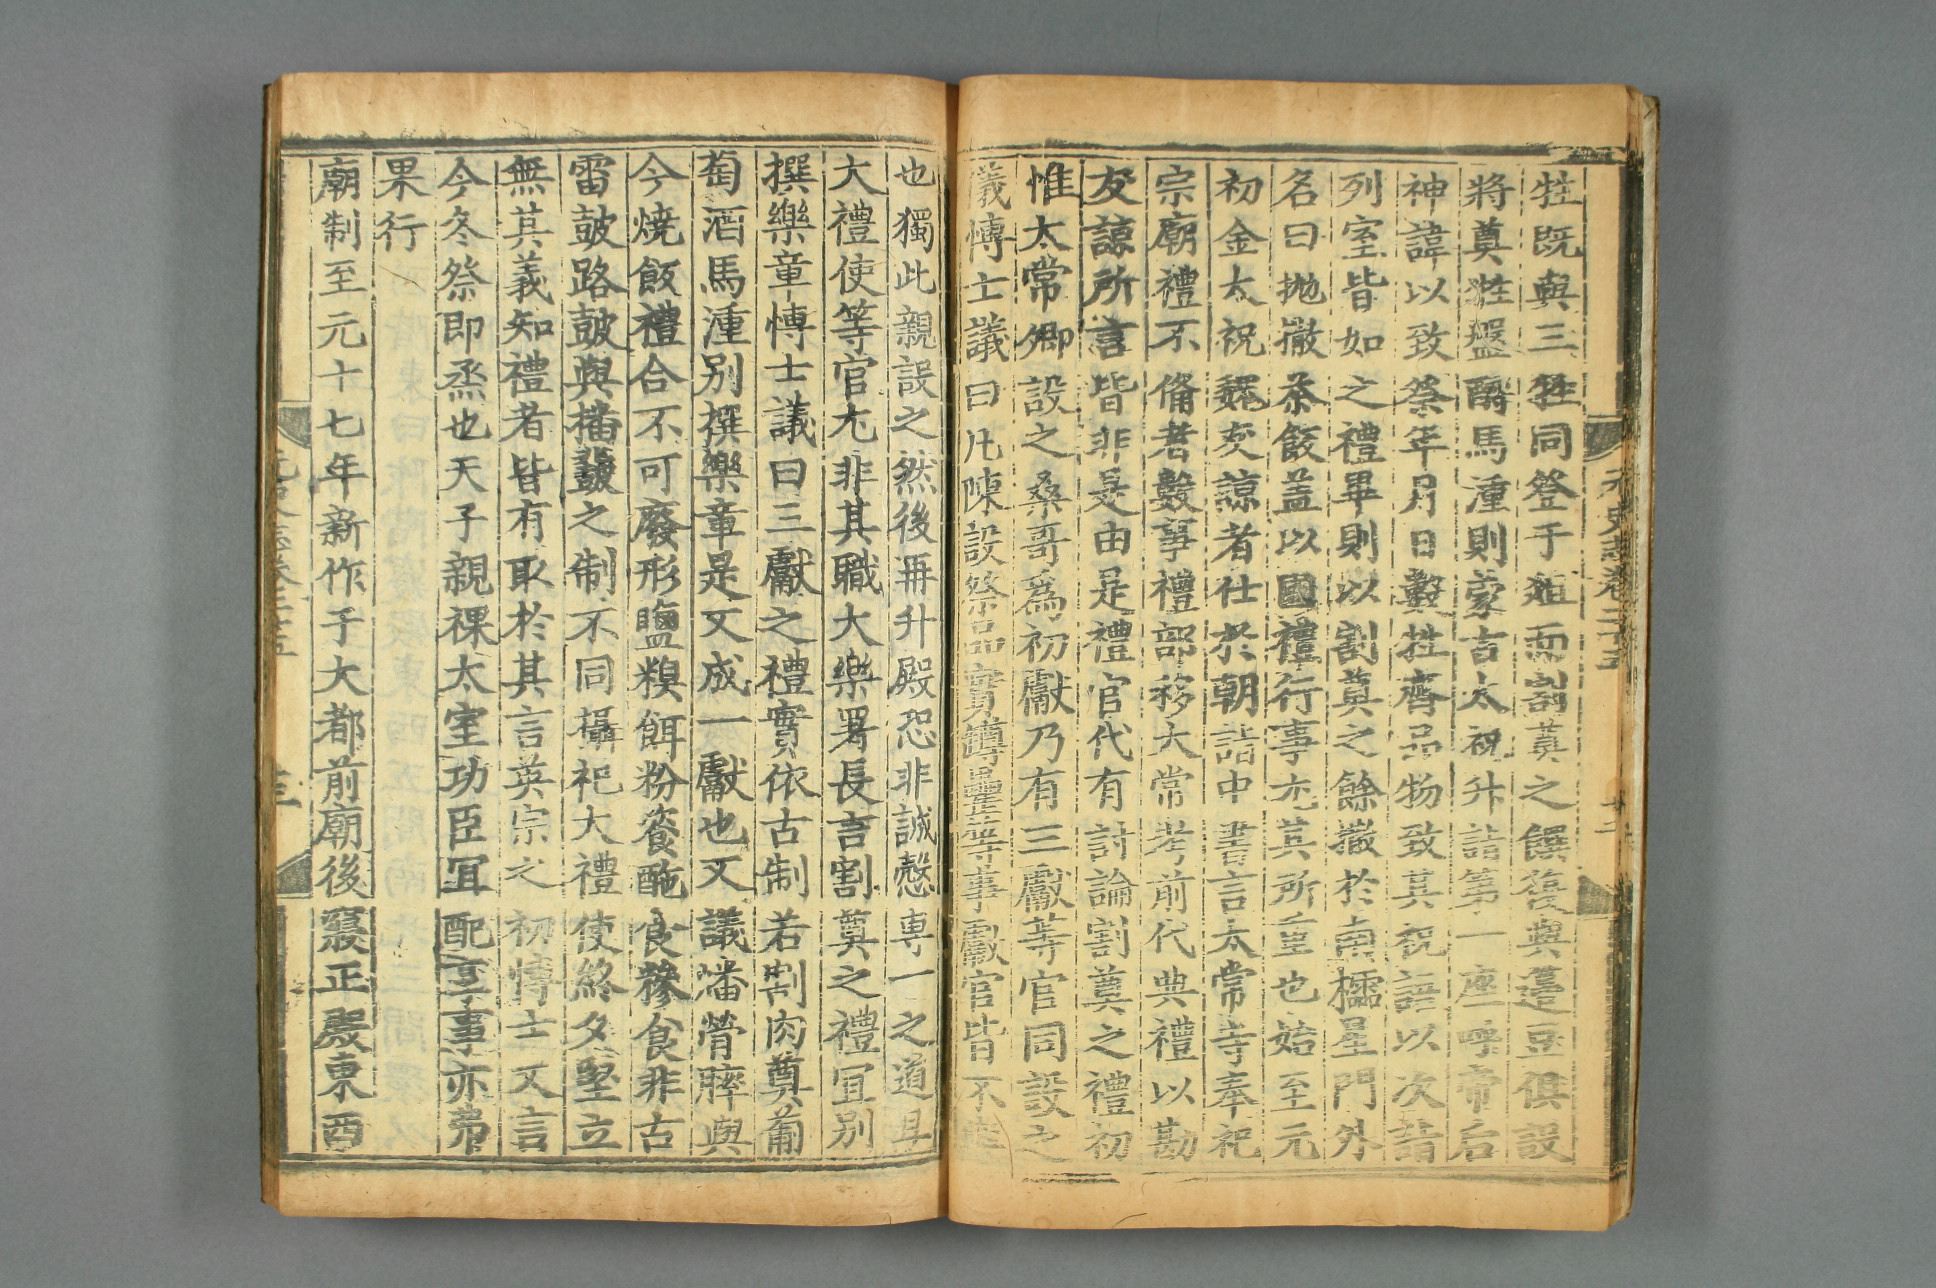 牲既與三牲同登于俎而割奠之饌復與籩豆俱設
將奠牲盤酹馬湩則蒙古太祝升詣第一座呼帝后
神諱以致祭年月日數牲齊品物致其祝語以次詣
列室皆如之禮畢則以割奠之餘撒於南欞星門外
名曰拋撒茶飯蓋以國禮行事尤其所重也始至元
初金太祝魏友諒者仕於朝詣中書言太常寺奉祀
宗廟禮不備者數事禮部移太常考前代典禮以勘
友諒所言皆非是由是禮官代有討論割奠之禮初
惟太常卿設之桑哥爲初獻乃有三獻等官同設之
儀博士議曰凡陳設祭品實罇罍等事獻官皆不與
也獨此親設之然後再升殿恐非誠慤専一之道且
大禮使等官尤非其職大樂署長言割奠之禮冝別
撰樂章博士議曰三獻之禮實依古制若割肉奠葡
萄酒馬湩別撰樂章是又成一獻也又議燔膋膟與
今燒飯禮合不可廢形鹽糗餌粉餈酏食糝食非古
雷鼓路鼓與播鼗之制不同攝祀大禮使終夕堅立
無其義知禮者皆有取於其言英宗之初博士又言
今冬祭即烝也天子親祼太室功臣冝配享事亦弗
果行
廟制至元十七年新作于大都前廟後寢正殿東西
元史志卷二十五
元史志卷二十五